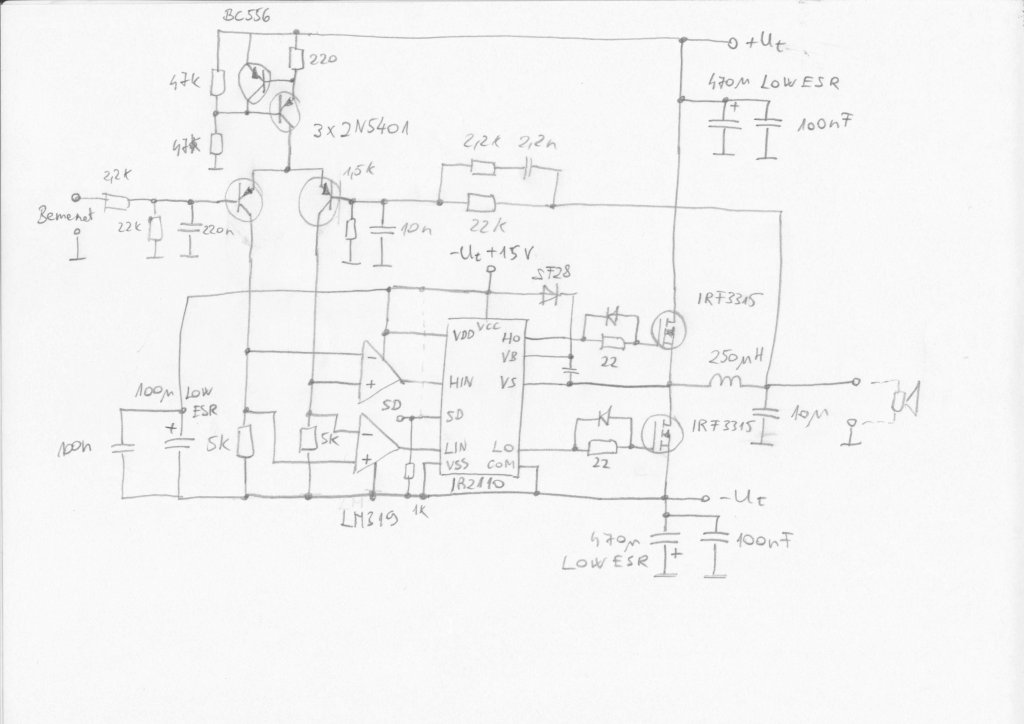 BC556
220
47k
47k
+Ut
470µ LOW ESR
+
100nF
3×2N5401
2,2k
2,2k
2,2n
1,5k
Bemenet
22k
220n
10n
22k
-Ut+15V
SF28
IRF3315
VCC
VDD
HO
VB
VS
22
250µH
-
+
HIN
SD
SD
100µ LOW
ESR
+
100n
5k
5k
-
+
LIN
VSS
LO
COM
22
IRF3315
10µ
IR2110
1K
LM319
-Ut
470µ
LOW ESR
+
100nF